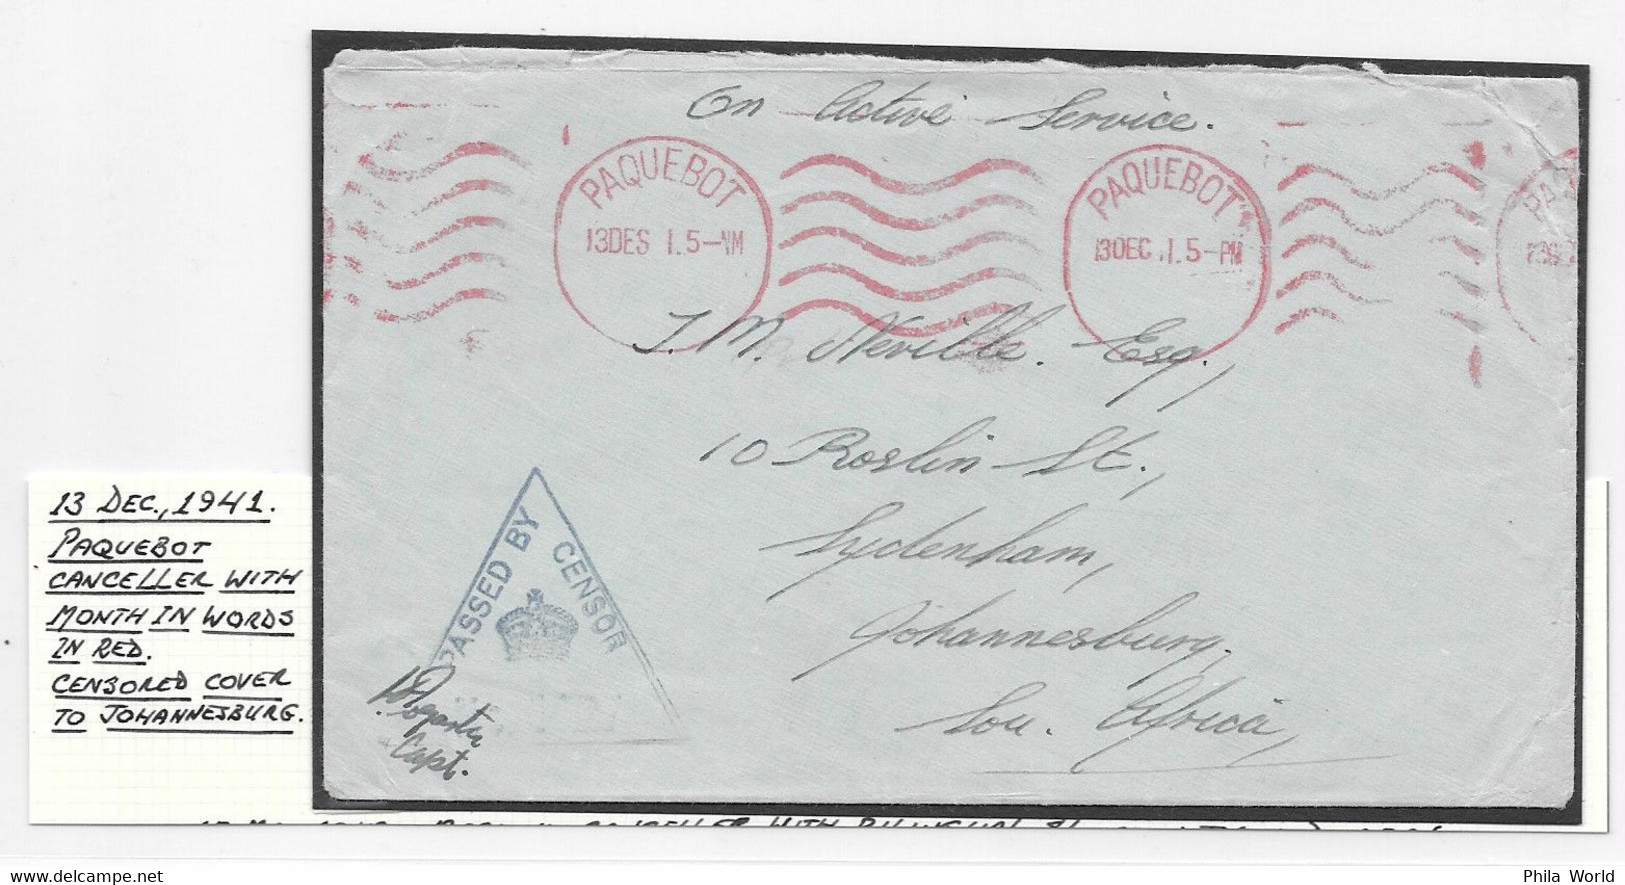 On Active Service.
PAQUEBOT
13DES 1.5-NM
PAQUEBOT
13DEC .1.5-PM
PA
J. M. Neville. Esq.,
10 Roslin St.,
Sydenham,
Johannesburg,
Sou. Africa,
PASSED BY CENSOR
Capt.
13 DEC., 1941.
PAQUEBOT
CANCELLER WITH
MONTH IN WORDS
IN RED.
CENSORED COVER
TO JOHANNESBURG.
Delcampe.net
Phila World